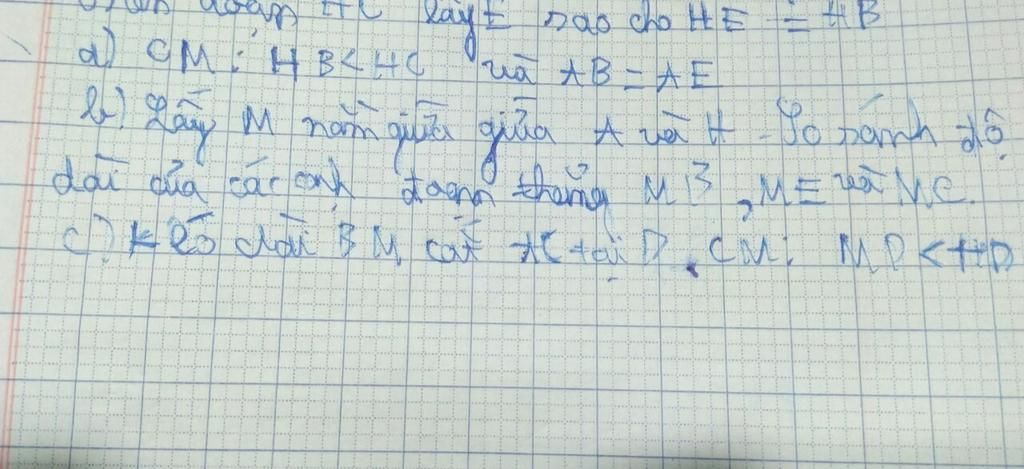 đoạn HC lấy E sao cho HE = HB
a) CM : HB < HC và AB = AE
b) Lấy M nằm giữa giữa A và H - So sánh độ
dài của các cạnh đoạn thẳng MB, ME và MC.
c) Kéo dài BM cắt AC tại D. CM: MD < HD